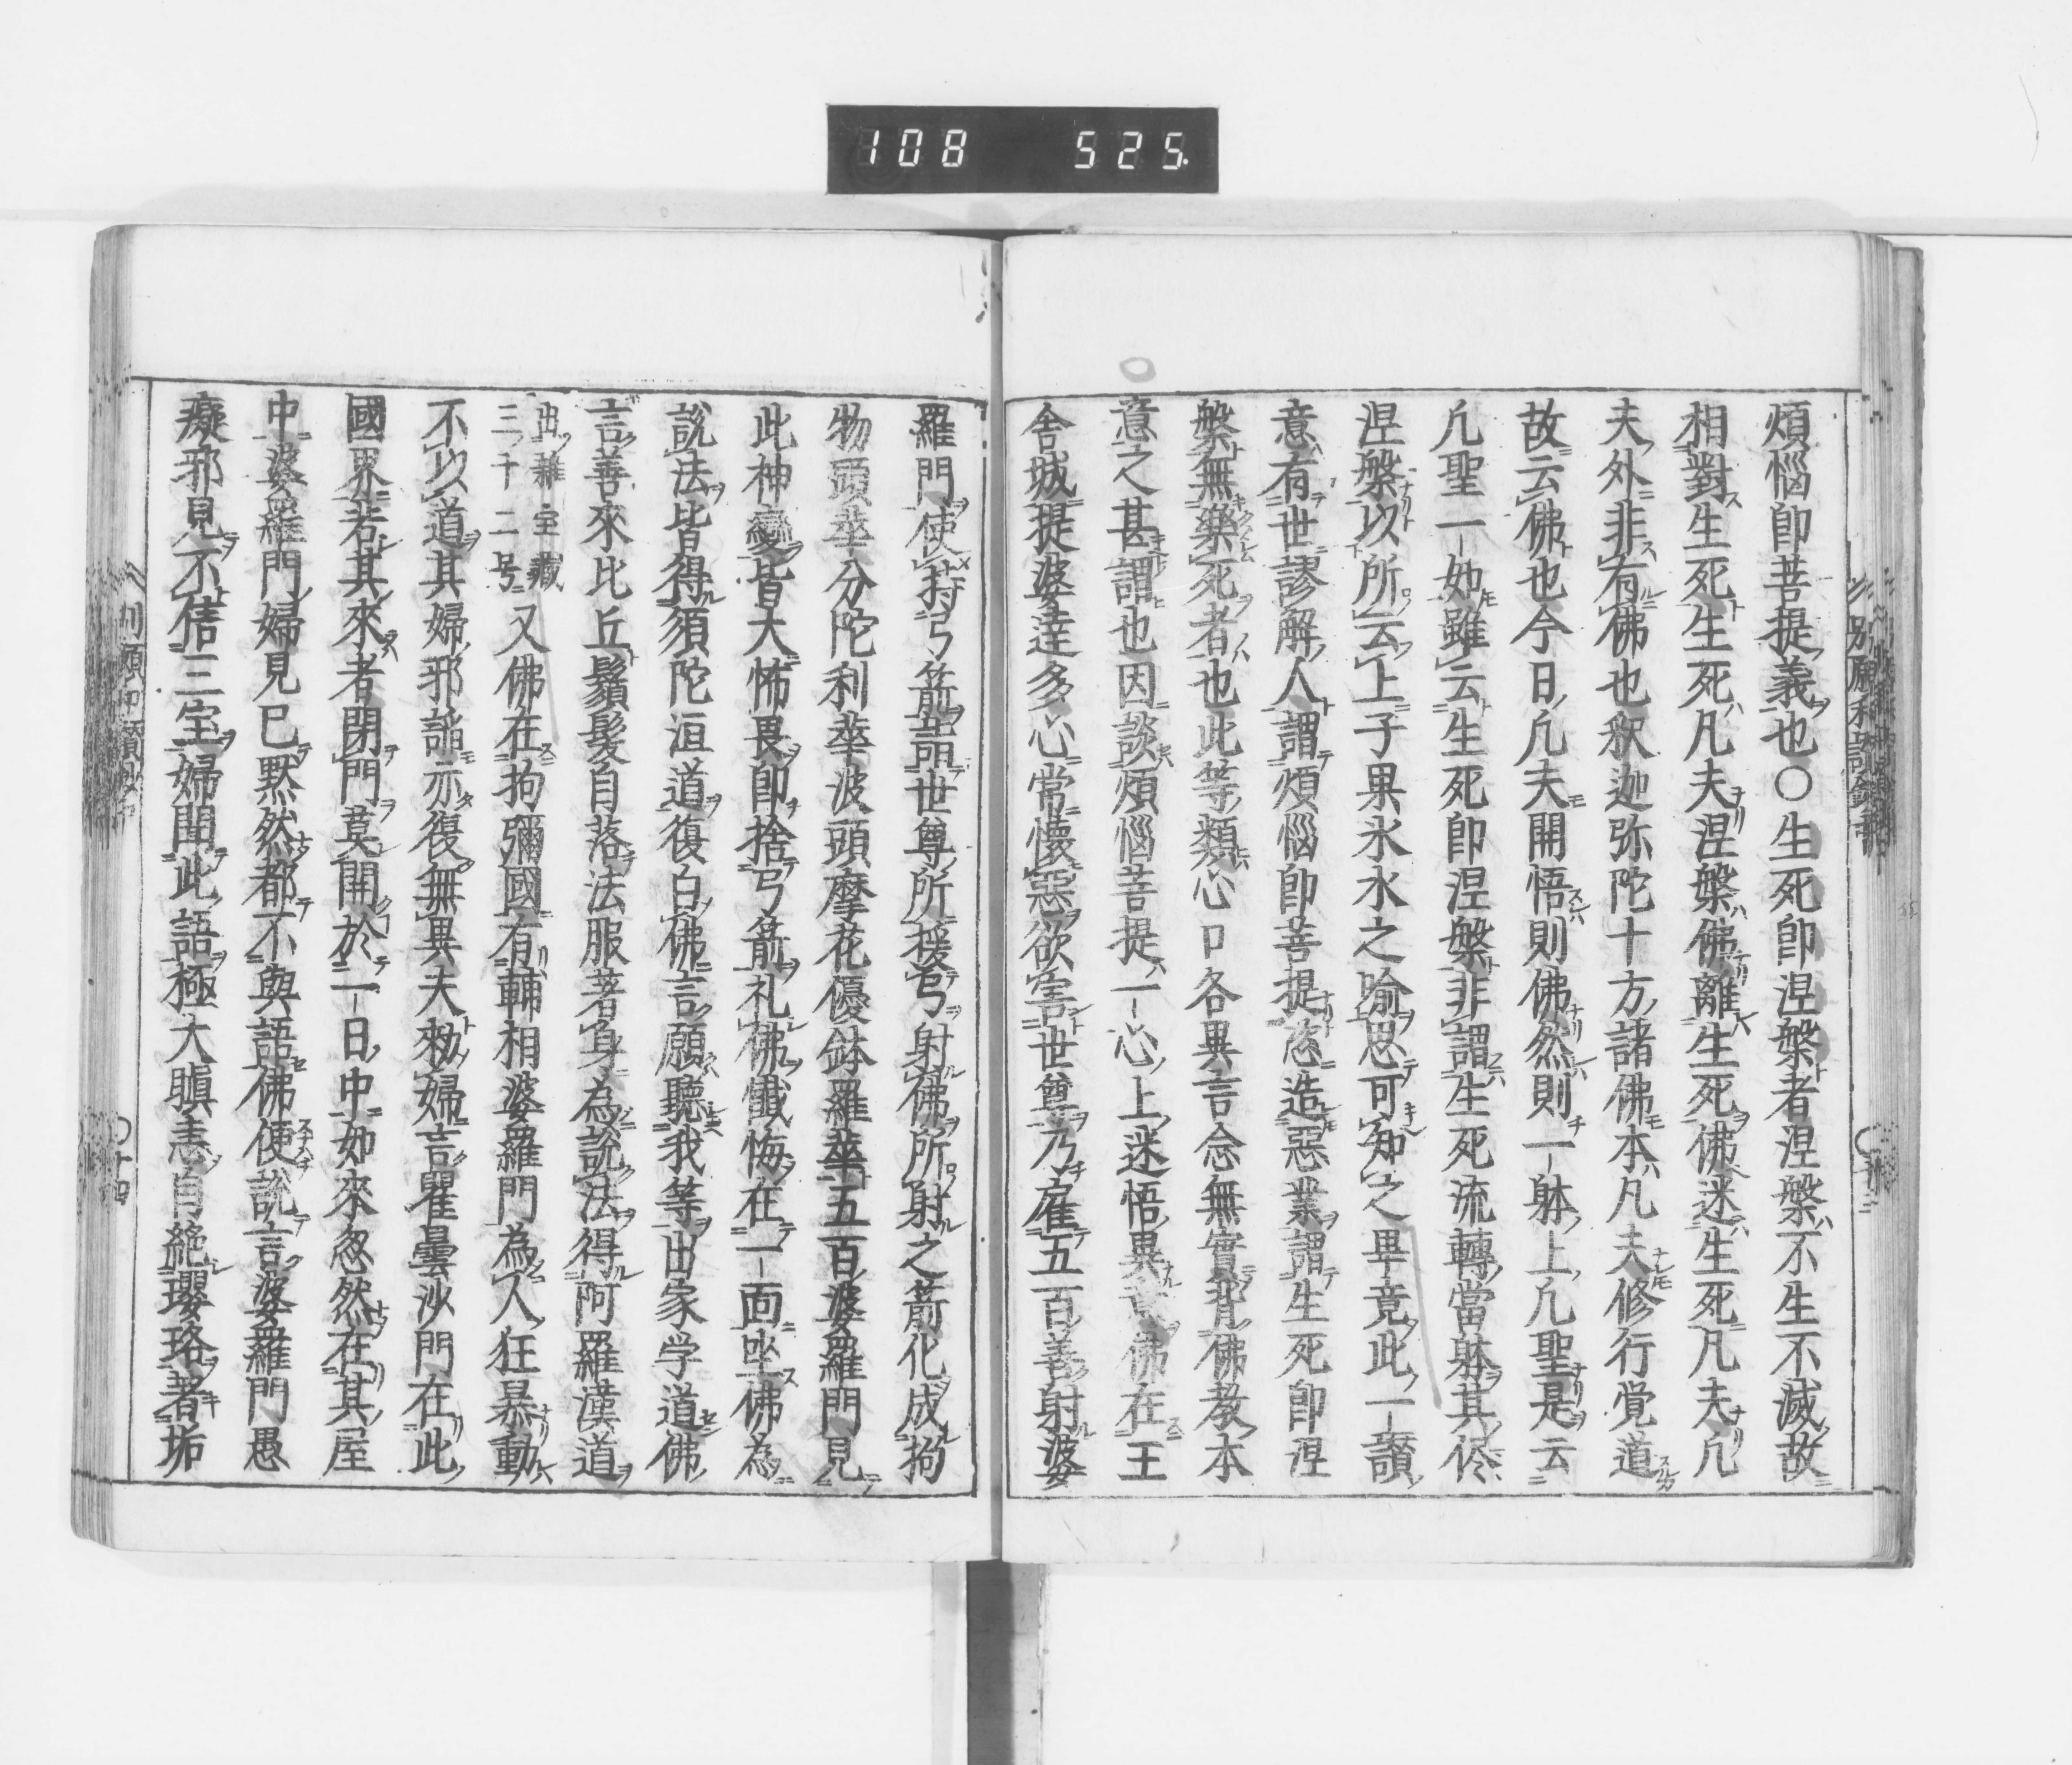 108 525
煩惱即菩提義也〇生死即涅槃者涅槃不生不滅故
相對生死生死凡夫涅槃佛離生死佛迷生死凡夫凡
夫外非有佛也釈迦弥陀十方諸佛本凡夫修行覚道
故云佛也今日凡夫開悟則佛然則一躰上凡聖是云
凡聖一如雖云生死即涅槃非謂生死流轉當躰其侭
涅槃以所云上子果氷水之喻思可知之畢竟此一讀
意有世謬解人謂煩惱即菩提恣造惡業謂生死即涅
槃無樂死者也此等類心口各異言念無實背佛教本
意之甚謂也因談煩惱菩提一心上迷悟異意佛在王
舍城提婆達多心常懷惡欲害世尊乃雇五百善射婆
羅門使持弓箭詣世尊所援弓射佛所射之箭化成拘
物頭華分陀利華波頭摩花優鉢羅華五百婆羅門見
此神變皆大怖畏即捨弓箭礼佛懺悔在一面坐佛為
說法皆得須陀洹道復白佛言願聽我等出家学道佛
言善來比丘鬚髮自落法服著身為說法得阿羅漢道
出雜宝藏
三十二号
又佛在拘彌國有輔相婆羅門為人狂暴動
不以道其婦邪諂亦復無異夫勑婦言瞿曇沙門在此
國界若其來者閉門莫開於一日中如來忽然在其屋
中婆羅門婦見已黙然都不與語佛便說言婆羅門愚
癡邪見不信三宝婦聞此語極大瞋恚自絶瓔珞著垢
十四